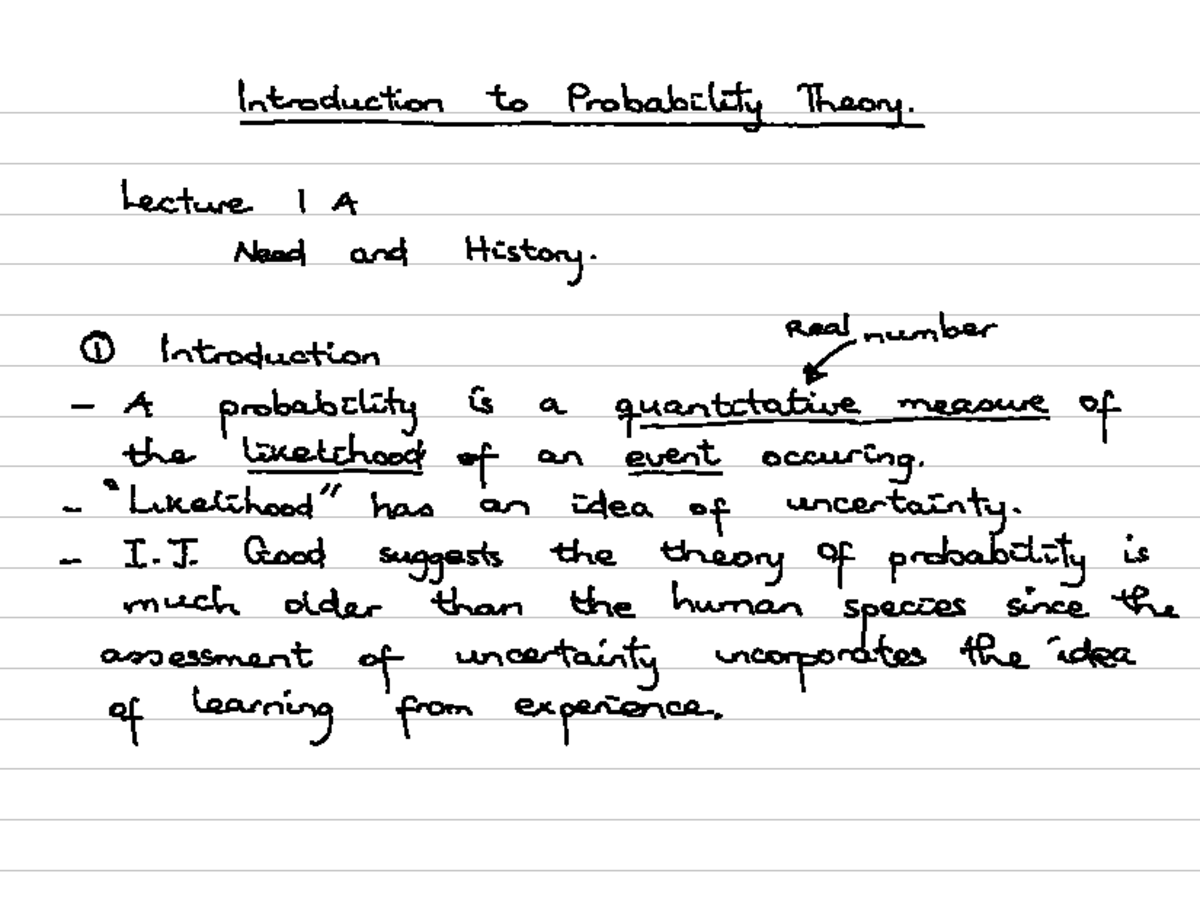 Introduction to Probability Theory.
Lecture 1 A
Need and History.
① Introduction
Real number
- A probability is a quantitative measure of
the likelihood of an event occuring.
- "Likelihood" has an idea of uncertainty.
- I.J. Good suggests the theory of probability is
much older than the human species since the
assessment of uncertainty incorporates the idea
of learning from experience.